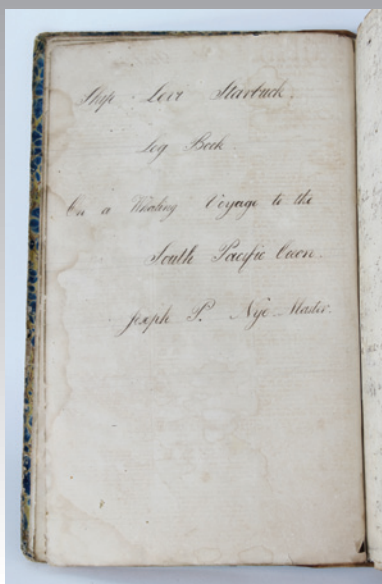 Ship Levi Starbuck.
Log Book.
On a Whaling Voyage to the
South Pacific Ocean.
Joseph P. Nye Master.